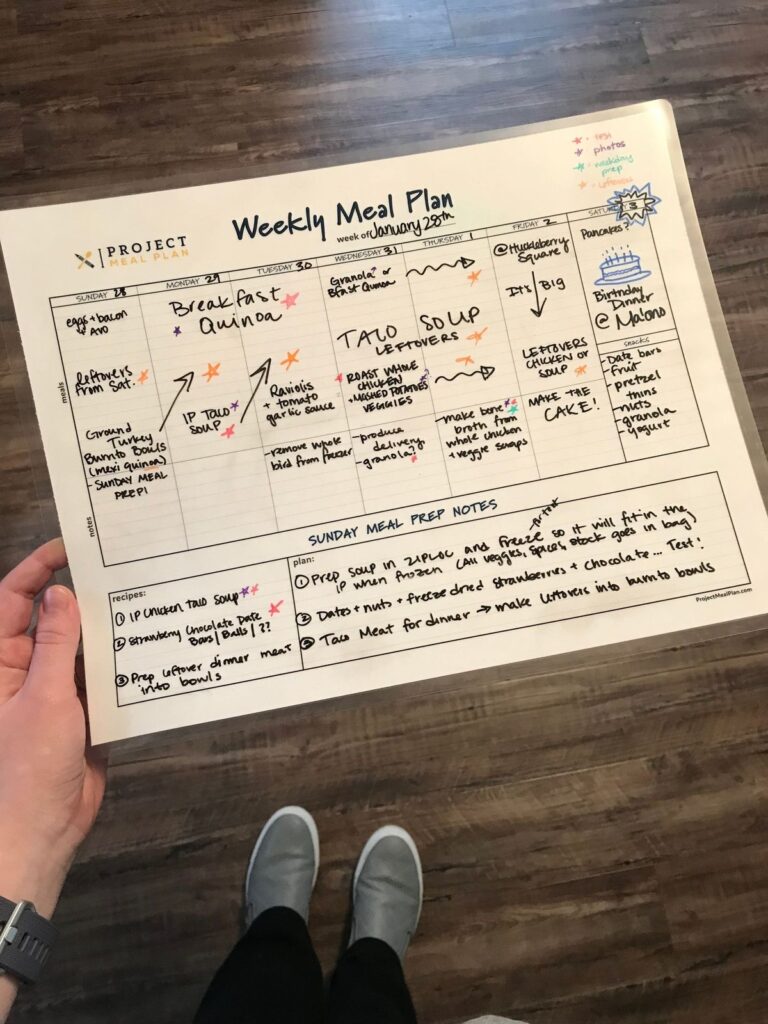 ★ - test
★ - photos
★ - weekday
prep
★ - leftovers
PROJECT
MEAL PLAN
Weekly Meal Plan
week of January 28th
SUNDAY 28
MONDAY 29
TUESDAY 30
WEDNESDAY 31
THURSDAY 1
FRIDAY 2
3
meals
eggs + bacon
+ AVO
Breakfast
Quinoa
Granola? or
Bfast Quinoa
@Huckleberry
Square
Pancakes?
Leftovers
from Sat.
TACO SOUP
LEFTOVERS
It's Big
Birthday
Dinner
@ Ma'ono
Ground
Turkey
Burrito Bowls
(mexi quinoa)
IP TACO
SOUP
Raviolis
+ tomato
garlic sauce
ROAST WHOLE
CHICKEN
+ MASHED POTATOES
VEGGIES
LEFTOVERS
CHICKEN OR
SOUP
snacks
- Date bars
- fruit
- pretzel
thins
- nuts
- granola
- yogurt
notes
- SUNDAY MEAL
PREP!
- remove whole
bird from freezer
- produce
delivery
- granola?
- make bone
broth from
whole chicken
+ veggie scraps
MAKE THE
CAKE!
SUNDAY MEAL PREP NOTES
recipes:
① IP Chicken Taco Soup
② Strawberry Chocolate Date
Bars / Balls / ??
③ Prep leftover dinner meat
into bowls
plan:
① Prep soup in ZIPLOC and freeze so it will fit in the
IP when frozen (All veggies, spices, stock goes in bag)
② Dates + nuts + freeze dried strawberries + chocolate... Test!
③ Taco Meat for dinner → make leftovers into burrito bowls
ProjectMealPlan.com